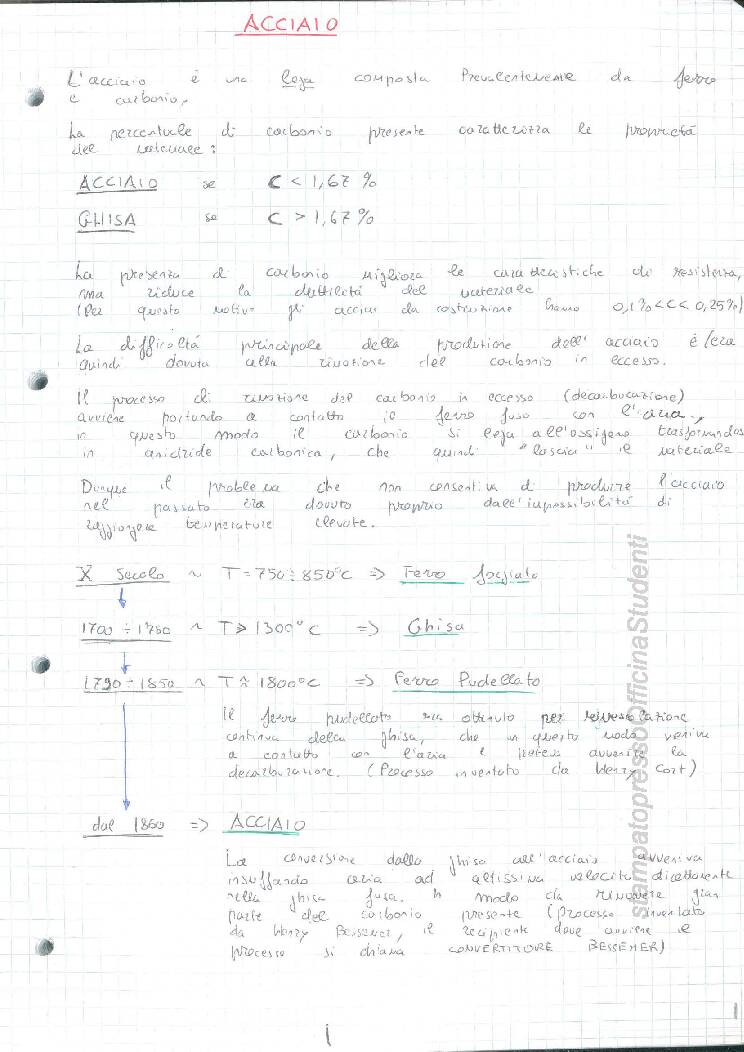 ACCIAIO
L'acciaio è una lega composta Prevalentemente da ferro
e carbonio.
La percentuale di carbonio presente caratterizza le proprietá
del materiale:
ACCIAIO se C < 1,67 %
GHISA se C > 1,67 %
La presenza di carbonio migliora le caratteristiche di resistenza,
ma riduce la duttilitá del materiale
(Per questo motivo gli acciai da costruzione hanno 0,1%<C< 0,25%)
La difficoltá principale della produzione dell'acciaio è/era
quindi dovuta alla rimozione del carbonio in eccesso.
Il processo di rimozione del carbonio in eccesso (decarburazione)
avviene portando a contatto il ferro fuso con l'aria,
in questo modo il carbonio si lega all'ossigeno trasformandosi
in anidride carbonica, che quindi "lascia" il materiale
Dunque il problema che non consentiva di produrre l'acciaio
nel passato era dovuto proprio dall'impossibilitá di
raggiungere temperature elevate.
X Secolo ~ T = 750 ÷ 850°C => Ferro forgiato
1700 ÷ 1750 ~ T > 1300°C => Ghisa
1790 ÷ 1850 ~ T ≈ 1800°C => Ferro Pudellato
Il ferro pudellato era ottenuto per
continua della ghisa, che in questo modo veniva
a contatto con l'aria e poteva avvenire la
decarburazione. (Processo inventato da Henry Cort)
dal 1860 => ACCIAIO
La conversione dalla ghisa all'acciaio avveniva
insuffando aria ad altissima velocitá direttamente
nella ghisa fusa. In modo da rimuovere gran
parte del carbonio presente (Processo inventato
da Henry Bessemer, il recipiente dove avviene il
processo si chiama CONVERTITORE BESSEMER)
stampatopressoOfficinaStudenti
1